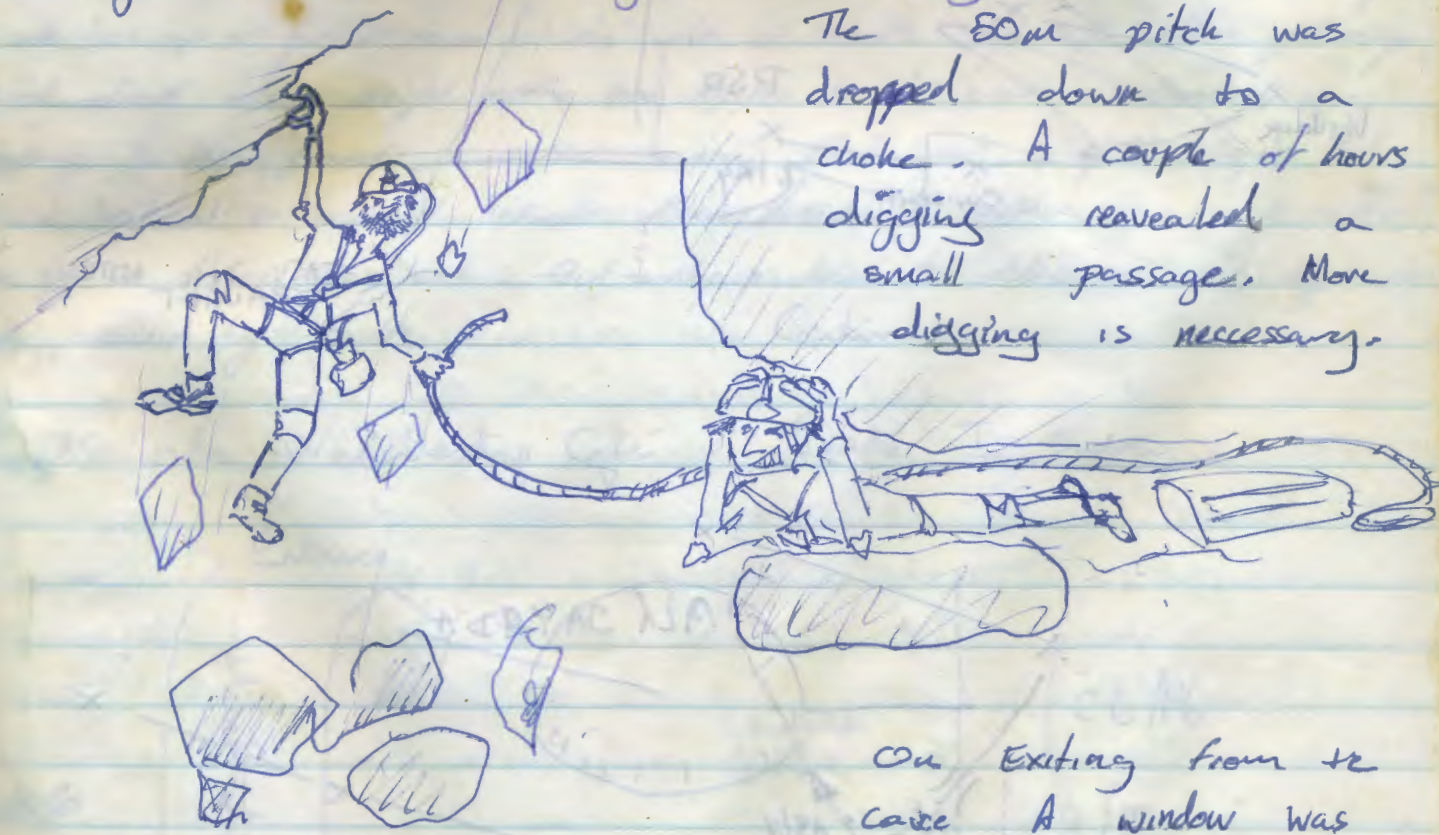 The 50m pitch was
dropped down to a
choke. A couple of hours
digging reavealed a
small passage. More
digging is neccessary.
On Exiting from te
cave A window was